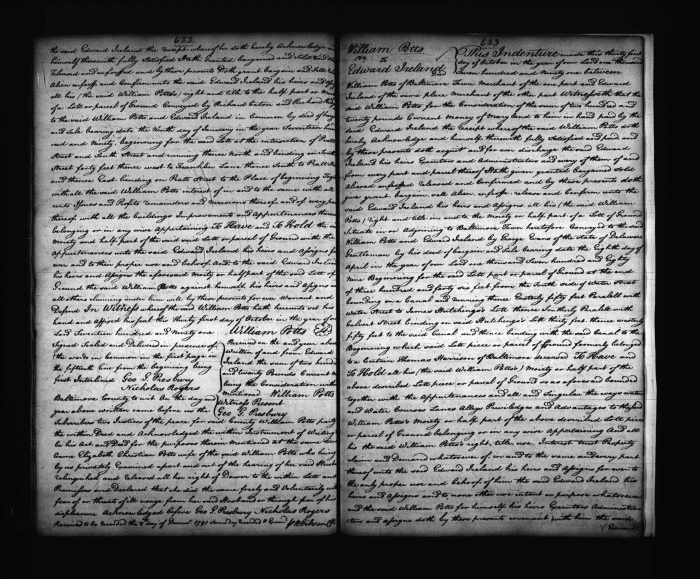 622
the said Edward Ireland the receipt whereof he doth hereby Acknowledge and
himself therewith fully satisfied Hath granted bargained and sold
released and enfeoffed and by these presents Doth grant bargain and sell
Alien enfeoff and Confirm unto the said Edward Ireland his heirs and assigns
all his the said William Potts's right and title to the half part or
of a Lot or parcel of Ground Conveyed by Richard and
to the said William Potts and Edward Ireland in Common by deed of
and sale bearing date the Ninth day of January in the year Seventeen
and Ninety, beginning for the said Lot at the intersection of Pratt
Street and South Street and running thence North and binding on South
Street forty feet thence South to Pratt
and thence East binding on Pratt Street to the Place of beginning
with all the said William Potts interest of in and to the same with all
Issues and Profits remainders and reversions thereof and of every part
thereof with all the buildings Improvements and Appurtenances thereto
belonging or in any wise appertaining To Have and To Hold the
Moiety and half part of the said Lot or parcel of Ground with the
appurtenances unto the said Edward Ireland his heirs and Assigns
and to their proper use and behoof And to the said Edward Ireland
his heirs and Assigns the aforesaid Moiety or half part of the said Lot of
Ground the said William Potts against himself his heirs and Assigns and
all others claiming under him will by these presents forever Warrant and
Defend In Witness whereof the said William Potts hath hereunto set his
hand and affixed his seal this thirty first day of October in the year of our
Lord Seventeen hundred and Ninety one William Potts
Signed Sealed and Delivered in presence of
the words in Common in the first page on
the fifteenth line from the beginning being
first Interlined Geo G. Presbury
Nicholas Rogers
Received on the day and year above
Written of and from Edward
Ireland the sum of two hundred
and twenty Pounds Current money
being the Consideration within
mentioned William Potts
Witness Present
Geo. G. Presbury
Baltimore County to wit On the day and
year above written came before us the
Subscribers two Justices of the peace for said County William Potts party
the within Deed and Acknowledged the within Instrument of Writing
to be his Act and Deed for the purposes therein Mentioned at the same time
Came Elizabeth Christian Potts wife of the said William Potts who being
by us privately Examined apart and out of the hearing of her said Husband
relinquished and released all her right of Dower to the within Lot and
Premises and Declared that she did the same freely and Voluntarily without
fear of or threats of ill usage from her said Husband or through fear of his
displeasure Acknowledged before Geo G. Presbury Nicholas Rogers
Received to be recorded the 8 day of 1791
623
William Potts
to
Edward Ireland
This Indenture made this thirty first
day of October in the year of our Lord one thousand
Seven hundred and Ninety one between
William Potts of Baltimore Town Merchant of the one part and Edward
Ireland of the same place Merchant of the other part Witnesseth that the
said William Potts for the Consideration of the sum of two hundred and
twenty pounds Current money of Maryland to him in hand paid by the
said Edward Ireland the receipt whereof the said William Potts doth
hereby Acknowledge and himself therewith fully satisfied and paid and
by these presents doth acquit and forever discharge the said Edward
Ireland his heirs Executors and Administrators and every of them of and
from every part and parcel thereof Hath given granted bargained sold
aliened enfeoffed released and Confirmed and by these presents doth
give grant bargain sell Alien enfeoff release and Confirm unto the
said Edward Ireland his heirs and Assigns all his (the said William
Potts) right and title in and to the moiety or half part of a Lott of Ground
Situate in or Adjoining to Baltimore Town heretofore Conveyed to the said
William Potts and Edward Ireland by George Evans of the State of Delaware
Gentleman by his deed of bargain and Sale bearing date the Eighth day of
April in the year of our Lord one thousand seven hundred and Eighty
Nine Beginning for the said Lott part or parcel of Ground at the end
of three hundred and forty six feet from the South side of Water Street
bounding on Canal and running thence Easterly fifty feet Parallell with
Water Street to James Lott thence Southerly Parallell with
Calvert Street binding on said Lott thirty feet thence westerly
fifty feet to the said Canal and thence binding with the said Canal to the
Beginning which said Lott piece or parcel of Ground formerly belonged
to a Certain Thomas Harrison of Baltimore deceased To Have and
To Hold all his (the said William Potts's) Moiety or half part of the
above described Lott piece or parcel of Ground so as aforesaid bounded
together with the Appurtenances and all and Singular the ways waters
and Water Courses Lanes Alleys Priviledges and Advantages to the said
William Potts's Moiety or half part of the above described Lott piece
or parcel of Ground belonging or in any wise appertaining And all
his the said William Potts right, title, use, Interest trust Property
claim and Demand whatsoever of in and to the same and every part
thereof unto the said Edward Ireland his heirs and Assigns forever to
the only proper use and behoof of him the said Edward Ireland his
heirs and Assigns and to none other use intent or purpose whatsoever
and the said William Potts for himself his heirs Executors Administrators
and assigns doth by these presents covenant with him the said